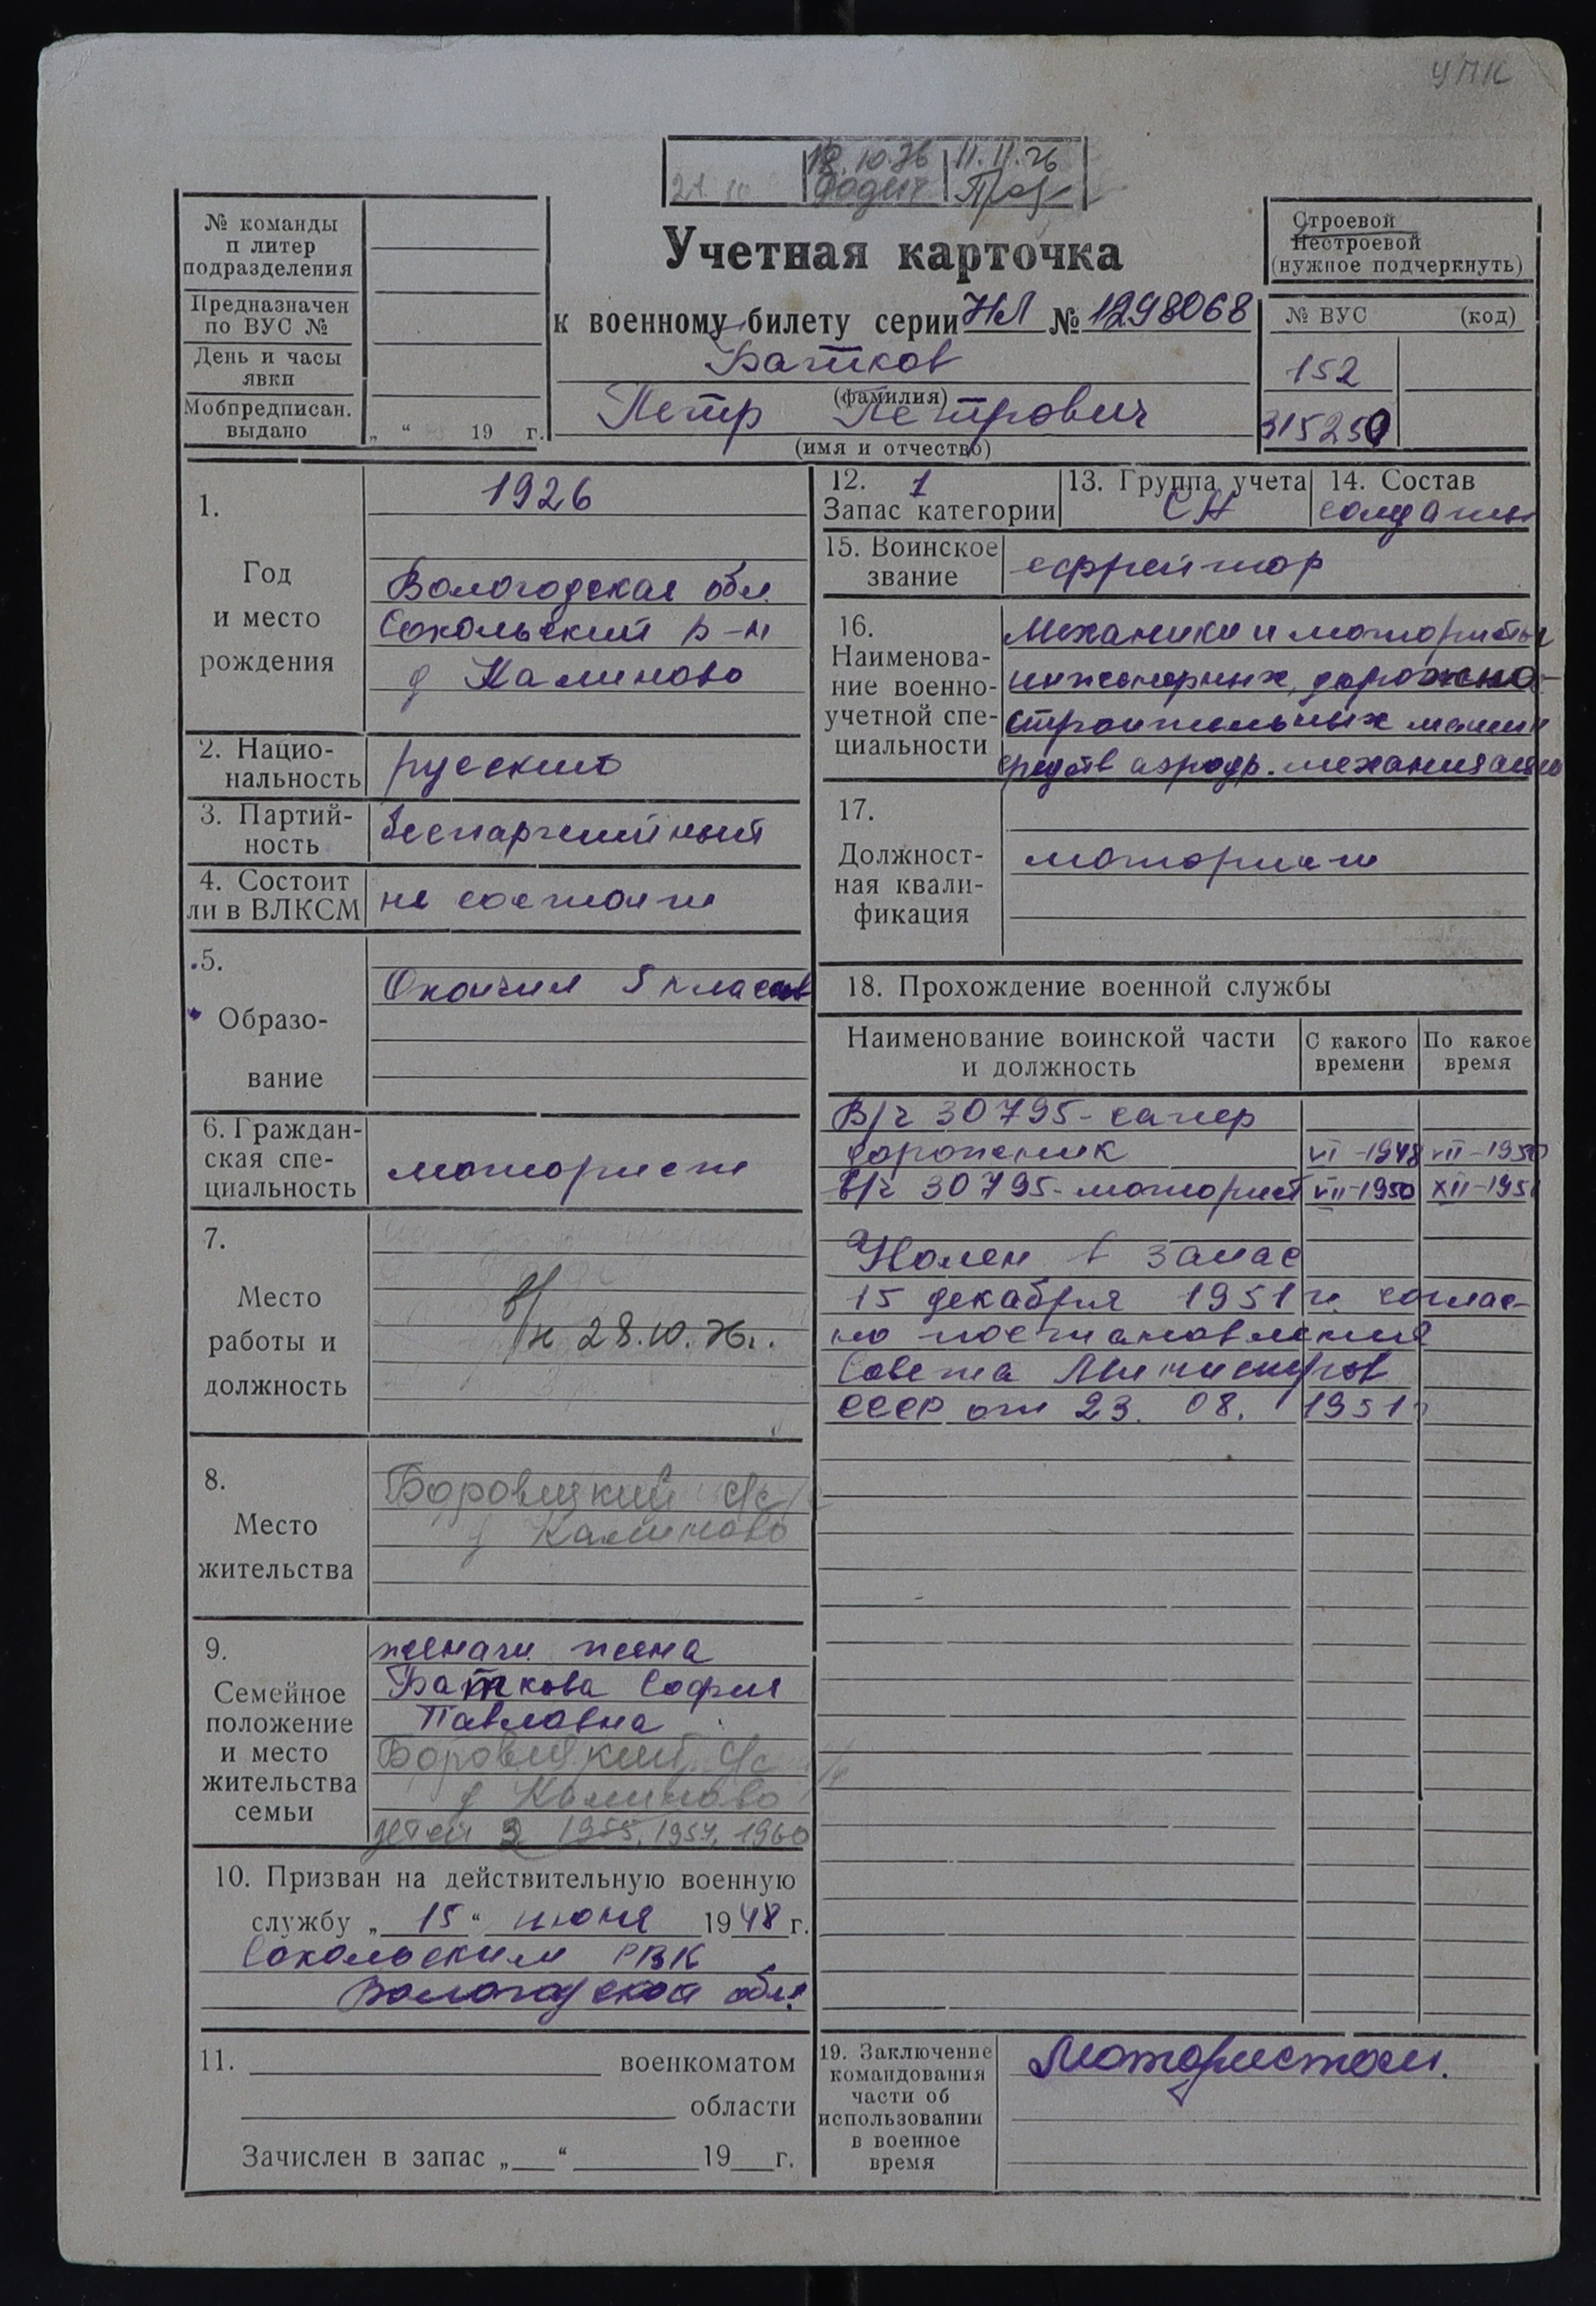 УПК
21.10
18.10.76 11.11.76
№ команды
п литер
подразделения
Предназначен
по ВУС №
День и часы
явки
Мобпредписан.
выдано
„ “ 19 г.
Учетная карточка
к военному билету серии НЛ № 1298068
Батков
(фамилия)
Петр Петрович
(имя и отчество)
Строевой
Нестроевой
(нужное подчеркнуть)
№ ВУС (код)
152
315250
1.
Год
и место
рождения
1926
Вологодская обл.
Сокольский р-н
д Калиново
2. Нацио-
нальность
русский
3. Партий-
ность
беспартийный
4. Состоит
ли в ВЛКСМ
не состоит
5.
Образо-
вание
Окончил 5 классов
6. Граждан-
ская спе-
циальность
моторист
7.
Место
работы и
должность
28.10.76г.
8.
Место
жительства
Боровецкий с/с
д Калиново
9.
Семейное
положение
и место
жительства
семьи
женат жена
Баткова София
Павловна
Боровецкий с/с
д Калиново
детей 1955, 1957, 1960
10. Призван на действительную военную
службу „ 15 “ июня 1948 г.
Сокольским РВК
Вологодской обл.
11. военкоматом
области
Зачислен в запас „ “ 19 г.
12. 1
Запас категории
13. Группа учета
СА
14. Состав
солдаты
15. Воинское
звание
ефрейтор
16.
Наименова-
ние военно-
учетной спе-
циальности
Механики и мотористы
инженерных, дорожно-
строительных машин
средств аэродр. механизации
17.
Должност-
ная квали-
фикация
моторист
18. Прохождение военной службы
Наименование воинской части
и должность
С какого
времени
По какое
время
В/ч 30795 - сапер
дорожник VI -1948 VII -1950
В/ч 30795 - моторист VII -1950 XII -1951
Уволен в запас
15 декабря 1951 г. соглас-
но постановления
Совета Министров
СССР от 23. 08. 1951г
19. Заключение
командования
части об
использовании
в военное
время
Мотористом.